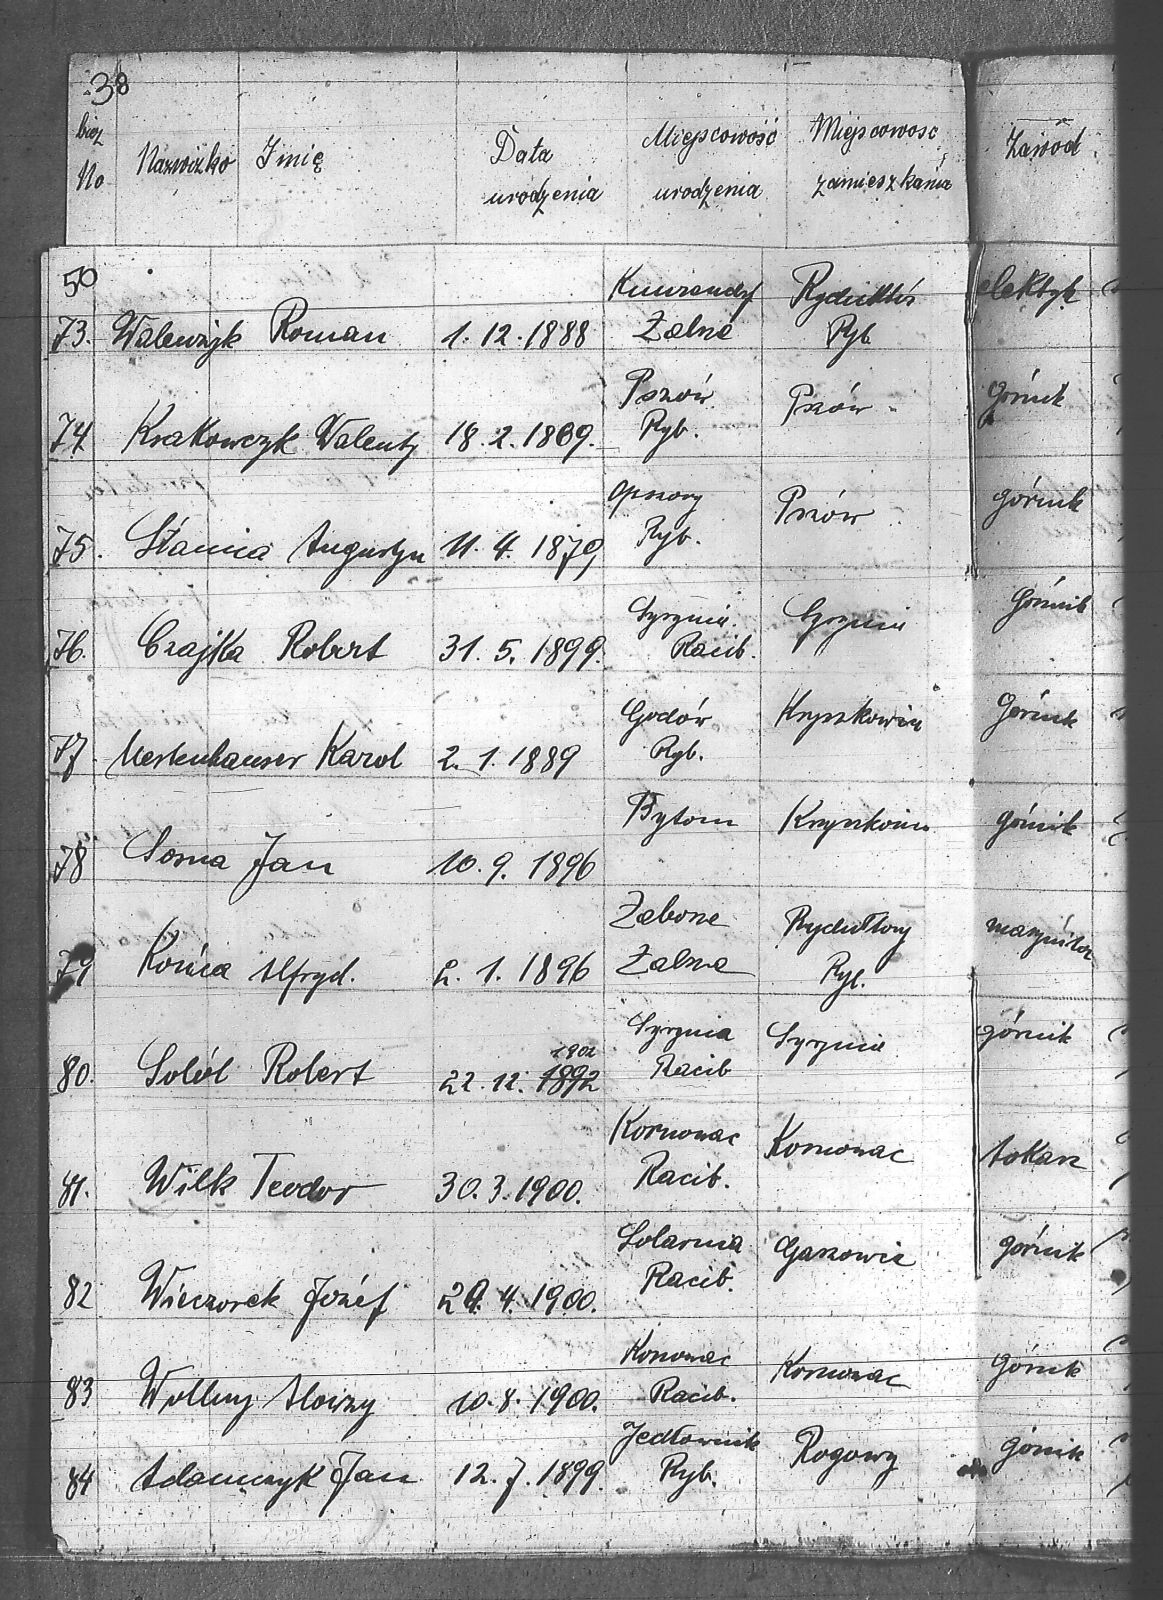 38
bież No Nazwizko Imię Data urodzenia Miejscowość urodzenia Miejscowość zamieszkania Zawód
50
73. Walewzyk Roman 1.12.1888 Zalne Rydułtów Ryb elektyk
74. Krakowczyk Walenty 18.2.1869. Pszów Ryb. Pszów górnik
75. Stania Augustyn 11.4.1879 Ryb. Pszów górnik
76. Czajka Robert 31.5.1899. Syrynia. Racib. Syrynia górnik
77. Karol 2.1.1889 Godów Ryb. Krzyszkowice górnik
78 Sosna Jan 10.9.1896 Bytom Krzyszkowice górnik
79 Alfryd. 2.1.1896 Zaborze Zabrze Rydułtowy Ryb. maszynista
80. Robert 22.12. 1892 1902 Syrynia Racib Syrynia górnik
81. Wilk Teodor 30.3.1900. Kornowac Racib. Kornowac tokarz
82 Wieczorek Józef 29.4.1900. Solarnia Racib. Gaszowic górnik
83 Wollny Aloizy 10.8.1900. Kornowac Racib. Kornowac górnik
84 Adamczyk Jan 12.7.1899. Jedłownik Ryb. Rogowy górnik